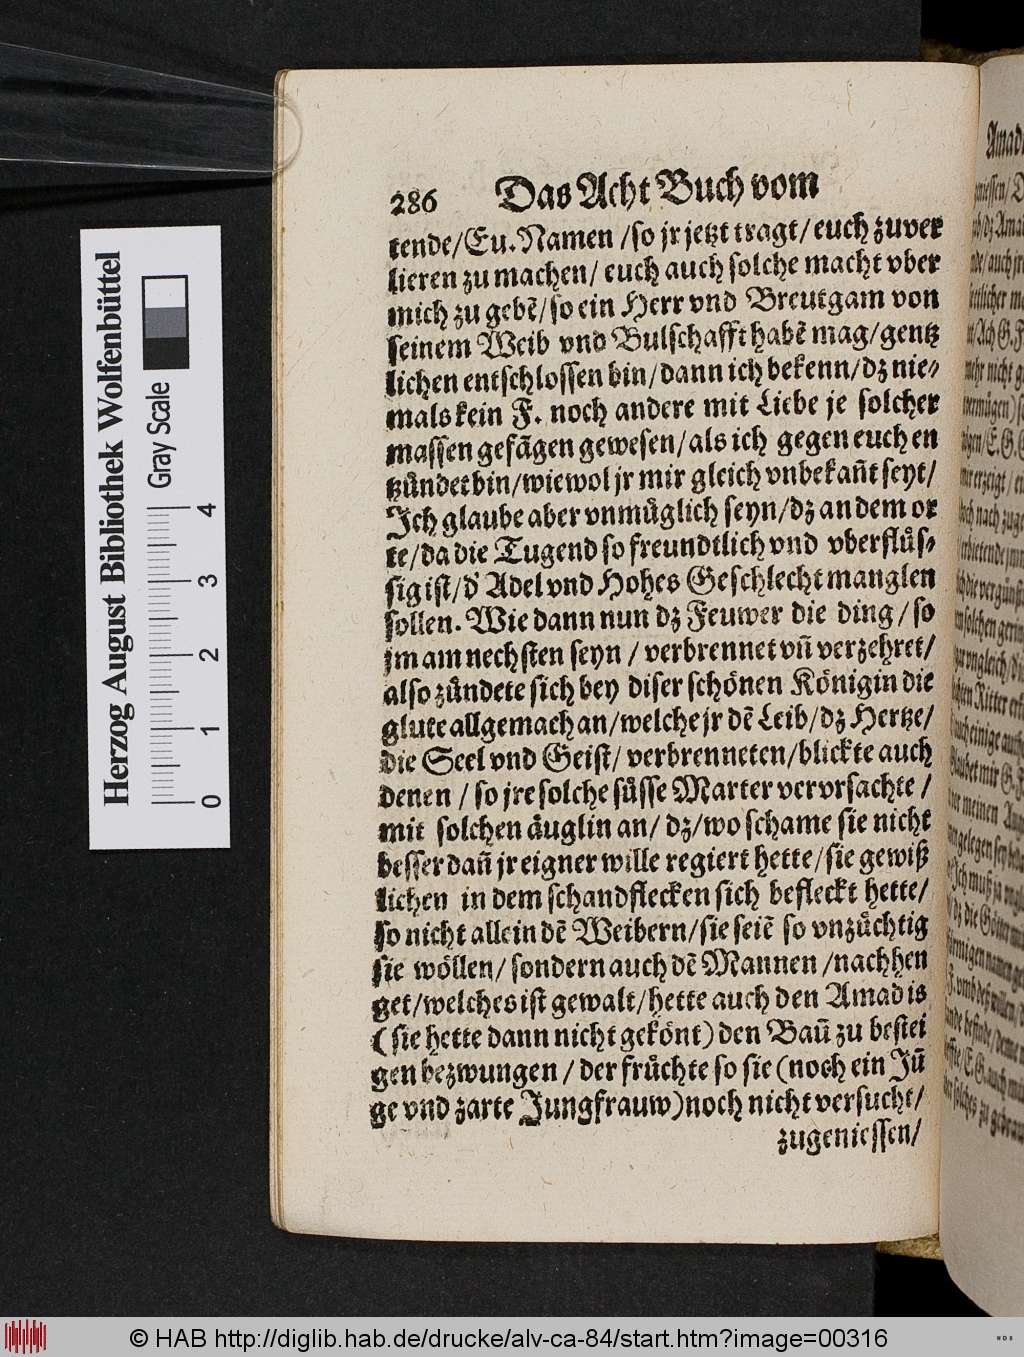 286 Das Acht Buch vom
tende/Eu. Namen /so jr jetzt tragt/ euch zuver
lieren zu machen/ euch auch solche macht vber
mich zu gebē/so ein Herr vnd Breutgam von
seinem Weib vnd Bulschafft habē mag/gentz
lichen entschlossen bin/dann ich bekenn/dz nie-
mals kein F. noch andere mit Liebe je solcher
massen gefāgen gewesen/als ich gegen euch en
tzündet bin/wiewol jr mir gleich vnbekañt seyt/
Ich glaube aber vnmüglich seyn/dz an dem or
te/da die Tugend so freundtlich vnd vberflüs-
sig ist/d' Adel vnd Hohes Geschlecht manglen
sollen. Wie dann nun dz Feuwer die ding/so
jm am nechsten seyn / verbrennet vñ verzehret/
also zündete sich bey diser schönen Königin die
glute allgemach an/welche jr dē Leib/dz Hertze/
die Seel vnd Geist/ verbrenneten/blickte auch
denen / so jre solche süsse Marter vervrsachte /
mit solchen äuglin an/ dz/wo schame sie nicht
besser dañ jr eigner wille regiert hette/sie gewiß
lichen in dem schandflecken sich befleckt hette/
so nicht allein dē Weibern/sie seiē so vnzüchtig
sie wöllen/ sondern auch dē Mannen /nachhen
get/welches ist gewalt/hette auch den Amadis
( sie hette dann nicht gekönt) den Baū zu bestei
gen bezwungen / der früchte so sie (noch ein Jū
ge vnd zarte Jungfrauw)noch nicht versucht/
zugeniessen/
Herzog August Bibliothek Wolfenbüttel
Gray Scale
0 1 2 3 4
© HAB http://diglib.hab.de/drucke/alv-ca-84/start.htm?image=00316